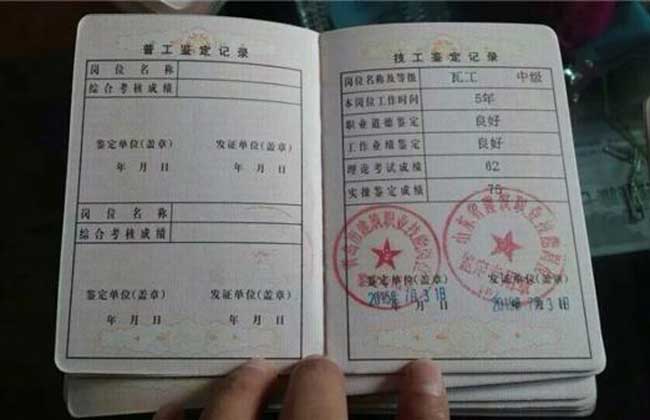 普工鉴定记录
岗位名称
综合考核成绩
鉴定单位(盖章) 发证单位(盖章)
年 月 日 年 月 日
岗位名称
综合考核成绩
鉴定单位(盖章) 发证单位(盖章)
年 月 日 年 月 日
技工鉴定记录
岗位名称及等级 瓦工 中级
本岗位工作时间 5年
职业道德鉴定 良好
工作业绩鉴定 良好
理论考试成绩 62
实操鉴定成绩 75
山东省建筑职业技能
鉴定单位(盖章) 发证单位(盖章)
7月31日 7月31日